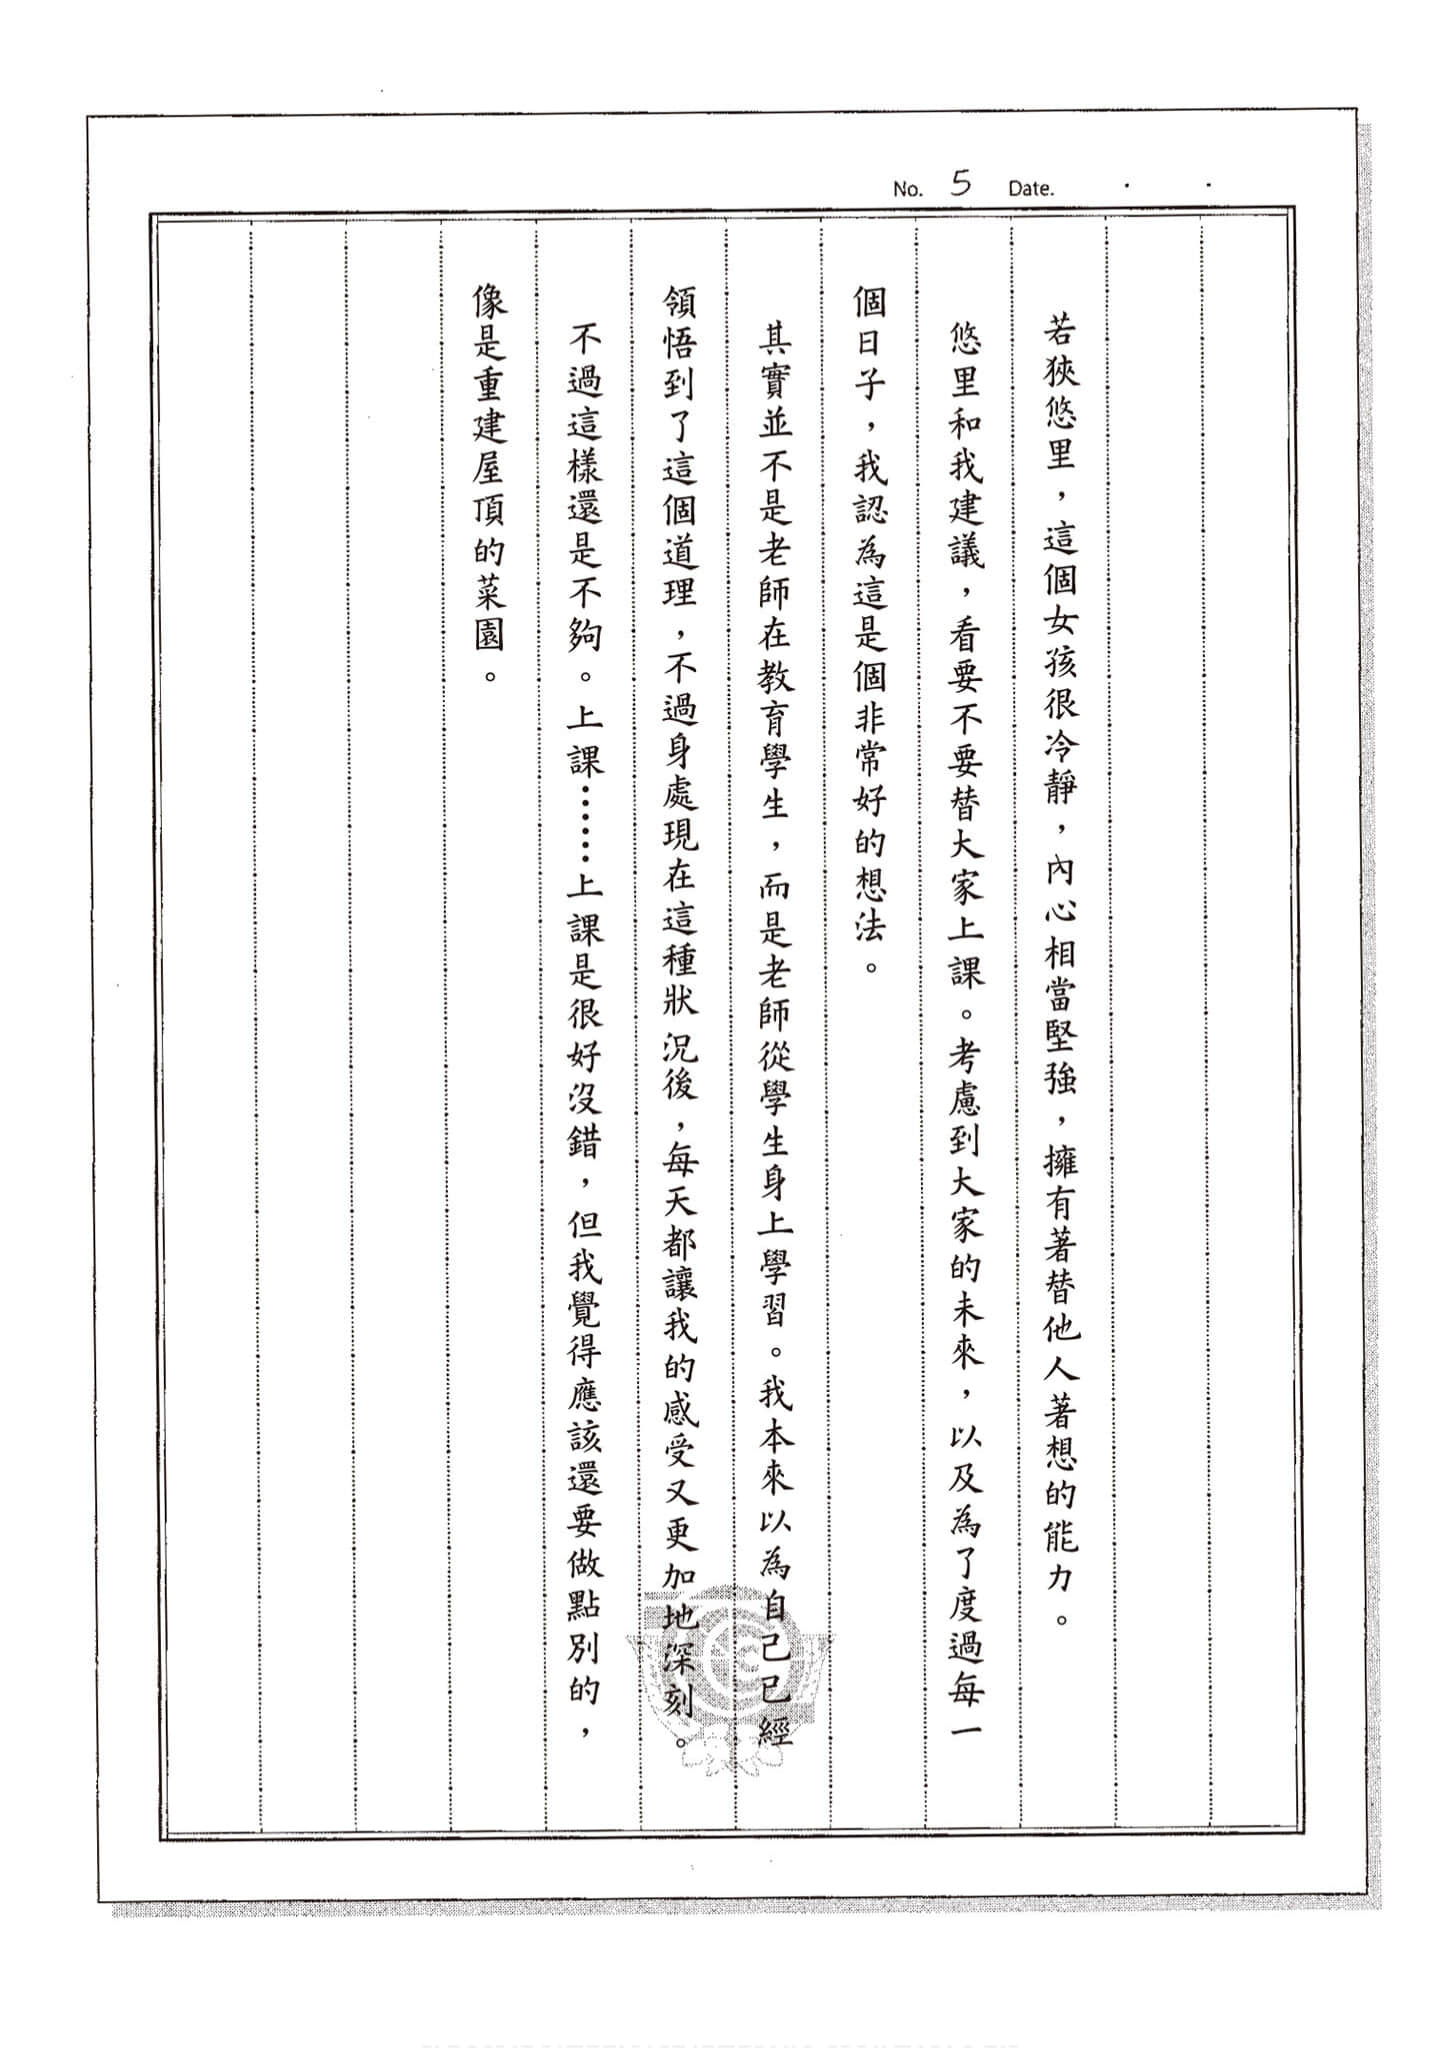 No. 5 Date. . .
若狹悠里，這個女孩很冷靜，內心相當堅強，擁有著替他人著想的能力。
悠里和我建議，看要不要替大家上課。考慮到大家的未來，以及為了度過每一
個日子，我認為這是個非常好的想法。
其實並不是老師在教育學生，而是老師從學生身上學習。我本來以為自己已經
領悟到了這個道理，不過身處現在這種狀況後，每天都讓我的感受又更加地深刻。
不過這樣還是不夠。上課……上課是很好沒錯，但我覺得應該還要做點別的，
像是重建屋頂的菜園。